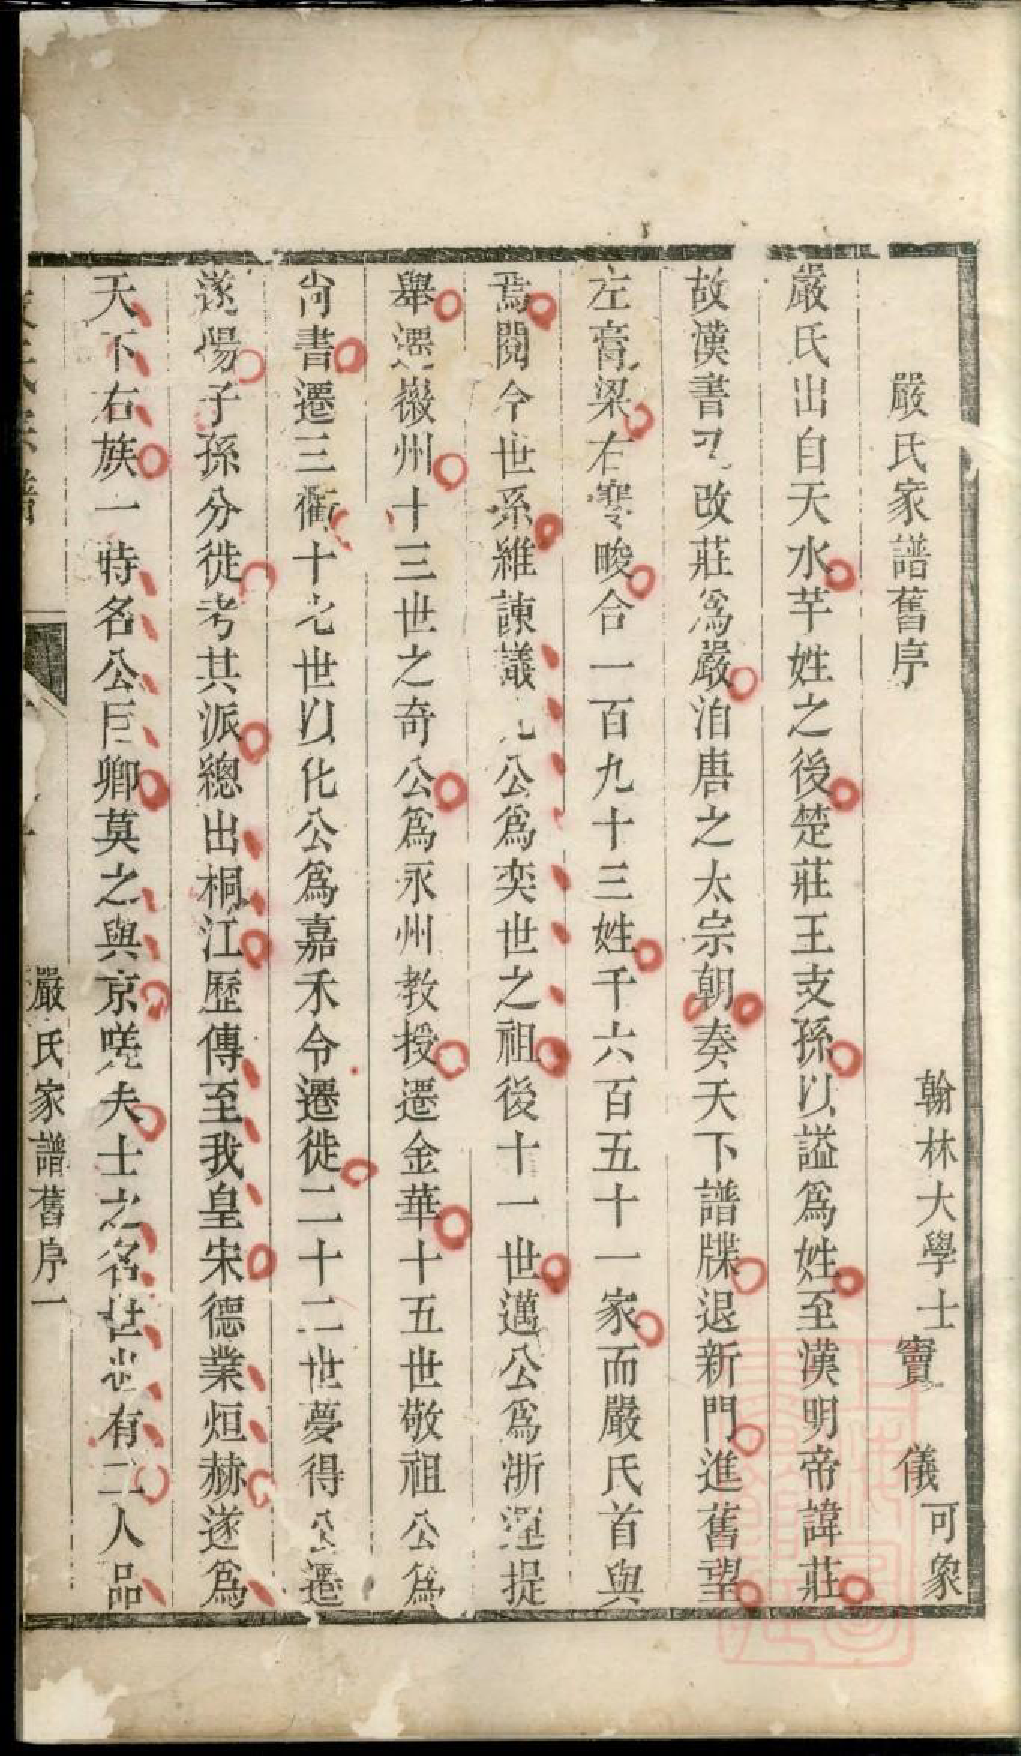 嚴氏家譜舊序
翰林大學士竇儀可象
嚴氏出自天水芊姓之後楚莊王支孫以謚爲姓至漢明帝諱莊
故漢書改莊爲嚴洎唐之太宗朝奏天下譜牒退新門進舊望
左膏梁右寒畯合一百九十三姓千六百五十一家而嚴氏首與
焉閱今世系維諫議公爲奕世之祖後十一世邁公爲浙運提
舉遷嶶州十三世之奇公爲永州教授遷金華十五世敬祖公爲
尙書遷三衢十七世以化公爲嘉禾令遷徙二十二世夢得公遷
遂陽子孫分徙考其派總出桐江歷傳至我皇宋德業烜赫遂爲
天下右族一時名公巨卿莫之與京嗟夫士之名世者有二人品
嚴氏家譜舊序一